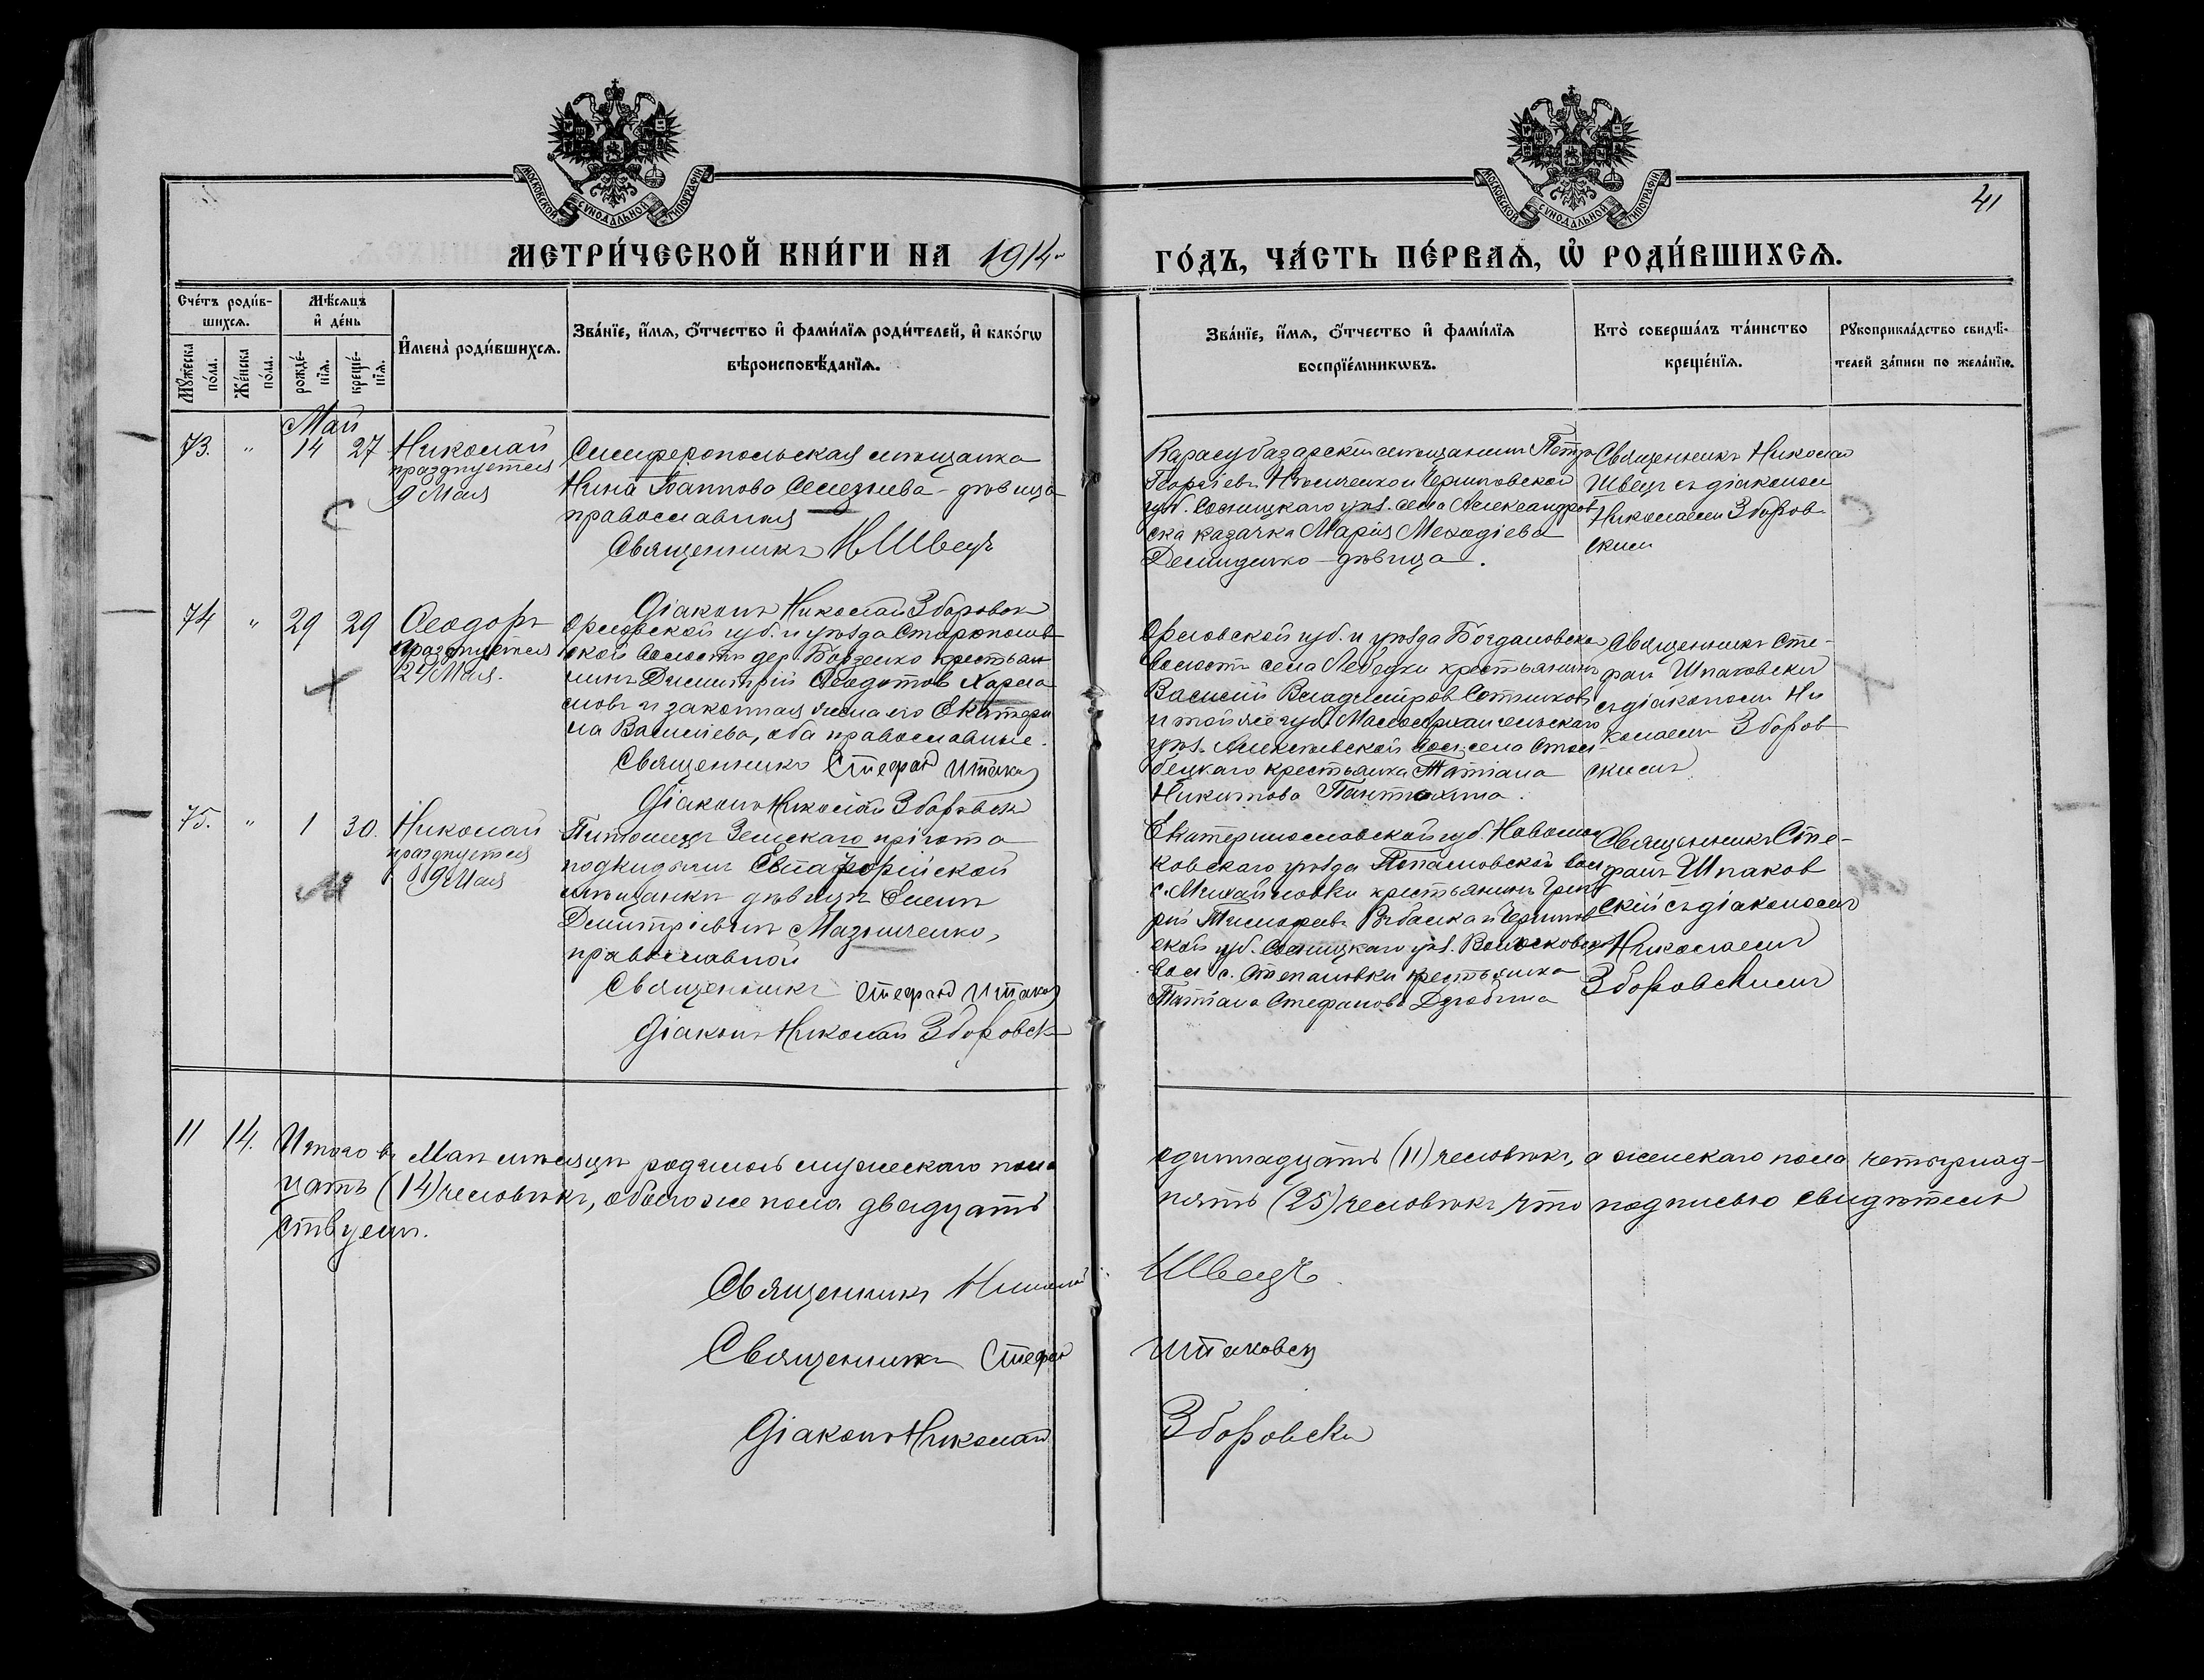 МОСКОВСКОЙ СѴНОДАЛЬНОЙ ТИПОГРАФІИ
МОСКОВСКОЙ СѴНОДАЛЬНОЙ ТИПОГРАФІИ
41
МЕТРИ́ЧЕСКОЙ КНИ́ГИ НА 1914 й
ГО́ДЪ, ЧА́СТЬ ПЕ́РВАѦ, Ѡ҆ РОДИ́ВШИХСѦ.
Сче́тъ роди́в-
шихсѧ.
Мꙋ́жеска по́ла.
Же́нска по́ла.
Мѣ́сѧцъ
и҆ де́нь
рожде́-
нїѧ.
креще́-
нїѧ.
И҆мена̀ роди́вшихсѧ.
Зва́нїе, и҆́мѧ, ѻ҆́тчество и҆ фами́лїѧ роди́телей, и҆ како́гѡ
вѣроисповѣ́данїѧ.
Зва́нїе, и҆́мѧ, ѻ҆́тчество и҆ фами́лїѧ
воспрїе́мникѡвъ.
Кто̀ соверша́лъ та́инство
креще́нїѧ.
Рꙋкоприкла́дство свидѣ́-
телей за́писи по жела́нїю.
Май
73. " 14 27 Николай
празднуется
9 Мая
С
Симферопольская мѣщанка
Нина Іоаннова Селезнева - дѣвица
православная
Священникъ Н Швецъ
Діаконъ Николай Зборовск
Карасубазарскій мѣщанинъ Петръ
Георгіевъ и Черниговской
губ. Сосницкаго уѣз. села Александров
ска казачка Марія Меходіева
Демиденко - дѣвица.
Священникъ Николай
Швецъ съ діакономъ
Николаемъ Зборов
скимъ
С
74 " 29 29 Ѳеодоръ
празднуется
Мая.
Орловской губ. и уѣзда
ской волости дер. крестьян
нинъ Димитрій Ѳеодотов Харла
мовъ и законная жена его Екатери
на Васильева, оба православные.
Священникъ Стефанъ Шпак
Діаконъ Николай Зборовск
Орловской губ. и уѣзда Богдановской
волости села Лебедки крестьянинъ
Василій Владиміров Сотников
и той же губ. Малоархангельскаго
уѣз. Алексѣевской вол. села
крестьянка Татіана
Никитова Пантюхина.
Священникъ Сте-
фан Шпаковскій
съ діакономъ Ни
колаемъ Зборов
скимъ
75. " 1 30. Николай
празднуется
9 Мая
М
Питомецъ Земскаго пріюта
подкидышъ Евпаторійской
мѣщанки дѣвицы Елены
Димитріевны Мазниченко,
православной
Священникъ Стефанъ Шпак
Діаконъ Николай Зборовск
Екатеринославской губ. Новомос
ковскаго уѣзда вол
с. Михайловки крестьянинъ Григо
рій Тимофеевъ и Чернигов
ской губ. Сосницкаго уѣз. Волосковской
вол с. Степановки крестьянка
Татіана Стефанова Дзюбина
Священникъ Сте-
фанъ Шпаков
скій съ діакономъ
Николаемъ
Зборовскимъ
М
11 14. Итого въ Маѣ мѣсяцѣ родилось мужескаго пола одиннадцать (11) человѣкъ, а женскаго пола четырнад-
цать (14) человѣкъ, обоего же пола двадцать пять (25) человѣкъ что подписью свидѣтель
ствуемъ.
Священникъ Николай Швецъ
Священникъ Стефан Шпаковск
Діаконъ Николай Зборовск